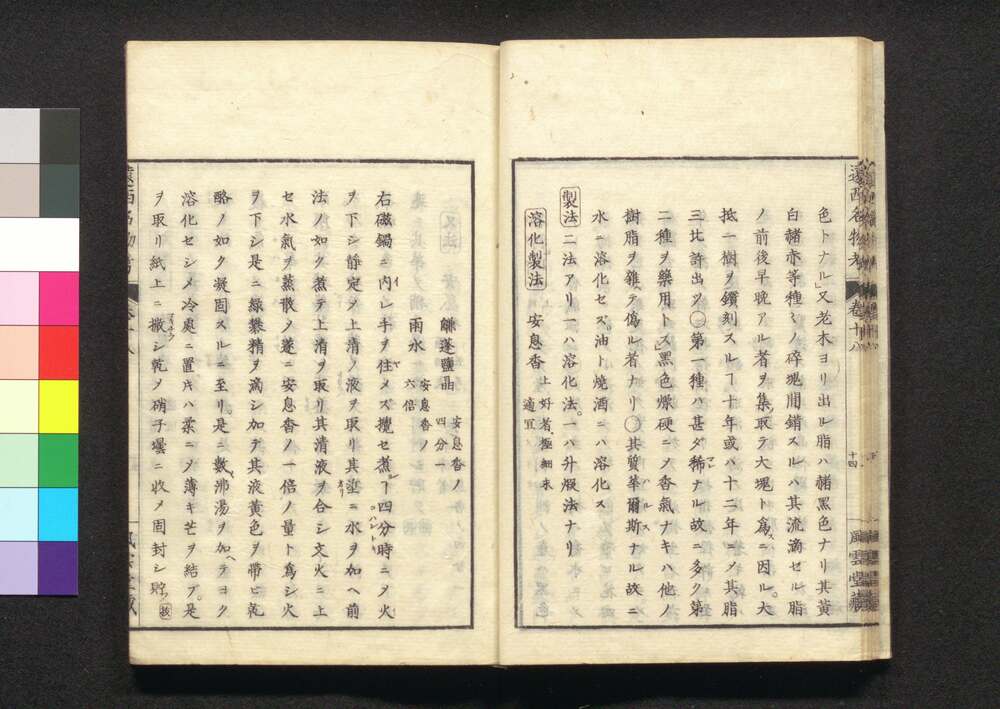 遠西名物考 巻十八 十四 風雲堂藏
色トナル」又老木ヨリ出ル脂ハ赭黒色ナリ其黄
白赭赤等種々ノ碎塊間錯スルハ其流滴セル脂
ノ前後早晩アル者ヲ集取テ大塊ト爲スニ因ル。大
抵一樹ヲ鑽刻スルヿ十年或ハ十二年ニノ其脂
三比許出ツ〇第一種ハ甚ダ稀マレナル故ニ多ク第
二種ヲ藥用トス」黒色燥硬ニノ香氣ナキハ他ノ
樹脂ヲ雜テ僞ル者ナリ〇其質華爾斯ハルスナル故ニ
水ニ溶化セズ。油ト燒酒ニハ溶化ス
製法 二法アリ一ハ溶化法。一ハ升煆法ナリ
溶化製法 安息香 上好者、極細末 適宜
鹻蓬鹽晶 安息香ノ四分一
雨水 安息香ノ六倍
右磁鍋ニ内イレ手ヲ住ヤメズ攪セ煮ルヿ四分時ニノ火
ヲ下シ靜定ノ上清ノ液ヲ取リ其滓ニ水ヲ加ヘ前
法ノ如ク煮テ上清ヲ取リ其清液ヲ合シ文火ニ上
セ水氣ヲ蒸散ノ
ヲ下シ是ニ綠礬精ヲ滴シ加テ其液黄色ヲ帶ビ乾
酪ノ如ク凝固スルニ至リ。是ニ數沸湯ヲ加ヘテヨク
溶化セシメ冷處ニ置キハ
ヲ取リ紙上ニ撒シ乾ノ硝子壜ニ收メ固封シ貯フ